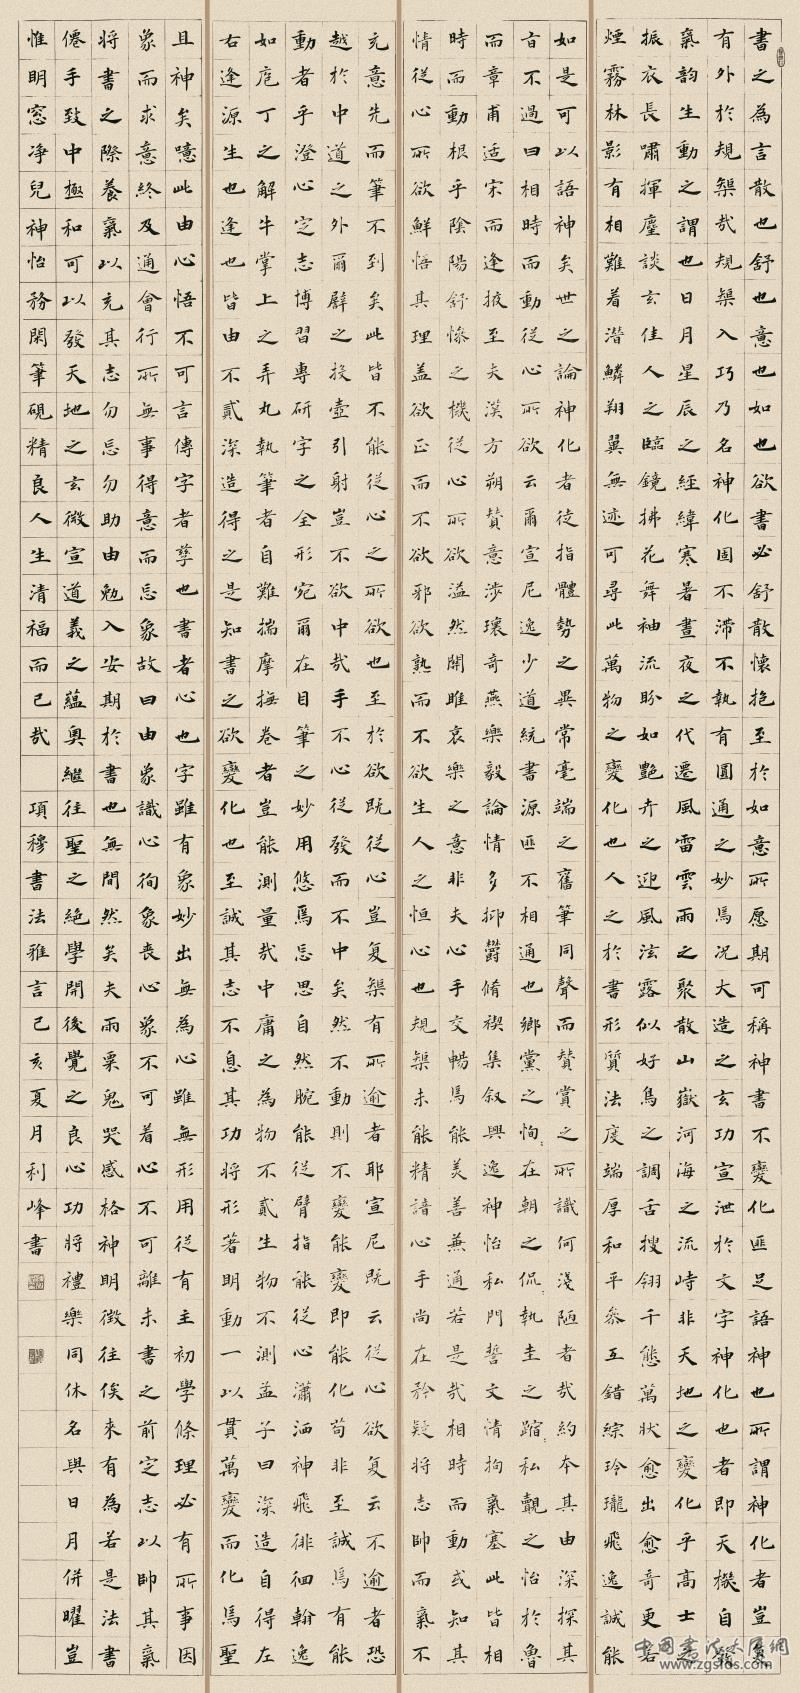 書之為言散也舒也意也如也欲書必舒散懷抱至於如意所愿期可稱神書不變化匪足語神也所謂神化者豈復
有外於規榘哉規榘入巧乃名神化固不滯不執有圓通之妙焉況大造之玄功宣泄於文字神化也者即天機自發
氣韵生動之謂也日月星辰之經緯寒暑晝夜之代遷風雷雲雨之聚散山嶽河海之流峙非天地之變化乎高士之
振衣長嘯揮麈談玄佳人之臨鏡拂花舞袖流盼如艷卉之迎風泫露似好鳥之調舌搜翎千態萬狀愈出愈奇更若
煙霧林影有相難着潛鱗翔翼無迹可尋此萬物之變化也人之於書形質法度端厚和平參互錯綜玲瓏飛逸誠能
如是可以語神矣世之論神化者徒指體勢之異常毫端之奮筆同聲而贊賞之所識何淺陋者哉約本其由深探其
旨不過曰相時而動從心所欲云爾宣尼逸少道統書源匪不相通也鄉黨之恂在朝之侃執圭之踖私覿之怡於魯
而章甫适宋而逢掖至夫漢方朔贊意涉瓌奇燕樂毅論情多抑欝脩禊集叙興逸神怡私門誓文情拘氣塞此皆相
時而動根乎陰陽舒慘之機從心所欲溢然關雎哀樂之意非夫心手交暢焉能美善兼通若是哉相時而動或知其
情從心所欲鮮悟其理蓋欲正而不欲邪欲熟而不欲生人之恒心也規榘未能精諳心手尚在矜疑將志帥而氣不
充意先而筆不到矣此皆不能從心之所欲也至於欲既從心豈复榘有所逾者耶宣尼既云從心欲复云不逾者恐
越於中道之外爾譬之投壺引射豈不欲中哉手不心從發而不中矣然不動則不變能變即能化苟非至誠焉有能
動者乎澄心定志博習專研字之全形宛爾在目筆之妙用悠焉忘思自然腕能從臂指能從心瀟洒神飛徘徊翰逸
如庖丁之解牛掌上之弄丸執筆者自難揣摩撫卷者豈能測量哉中庸之為物不貳生物不測孟子曰深造自得左
右逢源生也逢也皆由不貳深造得之是知書之欲變化也至誠其志不息其功將形著明動一以貫萬變而化焉聖
且神矣噫此由心悟不可言傳字者孳也書者心也字雖有象妙出無為心雖無形用從有主初學條理必有所事因
象而求意終及通會行所無事得意而忘象故曰由象識心徇象喪心象不可着心不可離未書之前定志以帥其氣
將書之際養氣以充其志勿忘勿助由勉入安期於書也無間然矣夫雨粟鬼哭感格神明徵往俟來有為若是法書
僊手致中極和可以發天地之玄微宣道義之蘊奧繼往聖之絕學開後覺之良心功將禮樂同休名與日月併曜豈
惟明窓净兒神怡務閑筆硯精良人生清福而已哉 項穆書法雅言己亥夏月利峰書
中國書法大展網
www.zgsfds.com